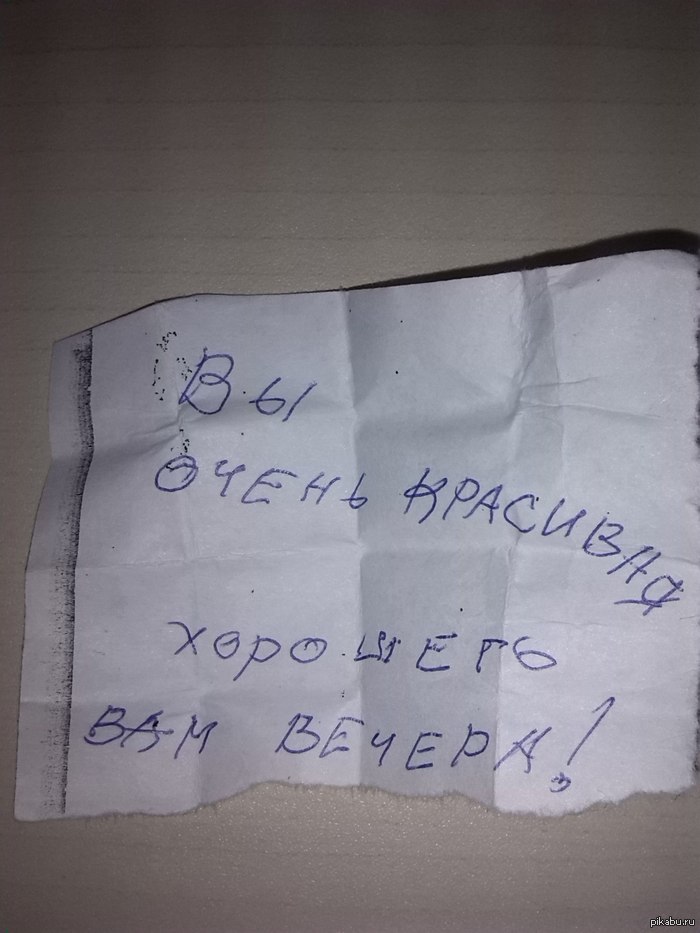 Вы
ОЧЕНЬ КРАСИВАЯ
ХОРОШЕГО
ВАМ ВЕЧЕРА!
pikabu.ru